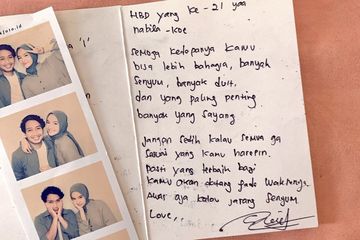 HBD yang ke-21 yaa
nabila-koe
semoga kedepanya kamu
bisa lebih bahagia, banyak
senyum, banyak duit,
dan yang paling penting
banyak yang sayang
Jangan sedih kalau semua ga
sesuai yang kamu harepin.
Pasti yang terbaik bagi
kamu akan datang pada waktunya.
Awas aja kalau jarang senyum
Love,